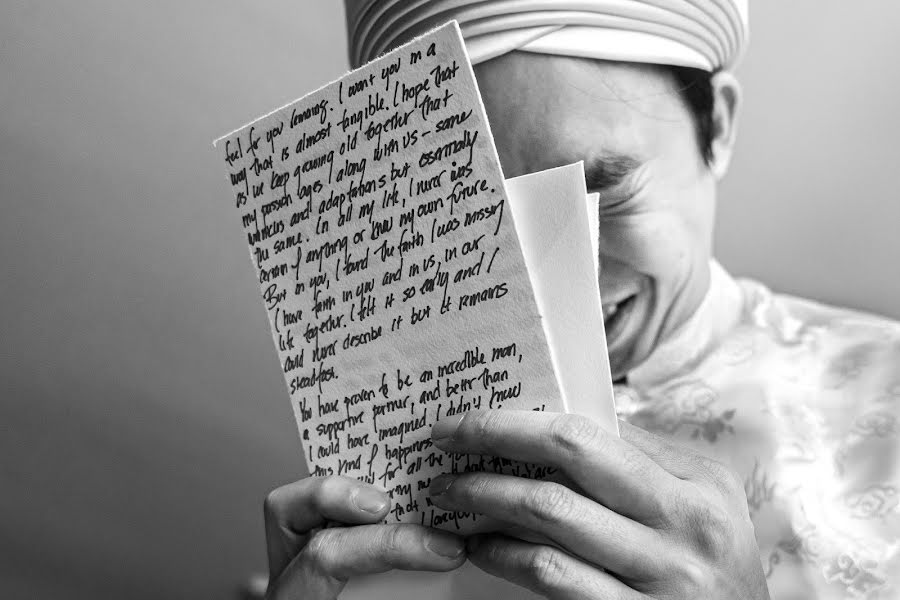 feel for you coming. I want you in a
way that is almost tangible. I hope that
as we keep growing old together that
my passion ages along with us - some
wrinkles and adaptations but essentially
the same. In all my life, I never was
certain of anything or knew my own future.
But in you, I found the faith I was missing
I have faith in you and in us, in our
life together. I felt it so early and I
could never describe it but it remains
steadfast.
You have proven to be an incredible man,
a supportive partner, and better than
I could have imagined. I didn't know
this kind of happiness
for all the
that
I love you